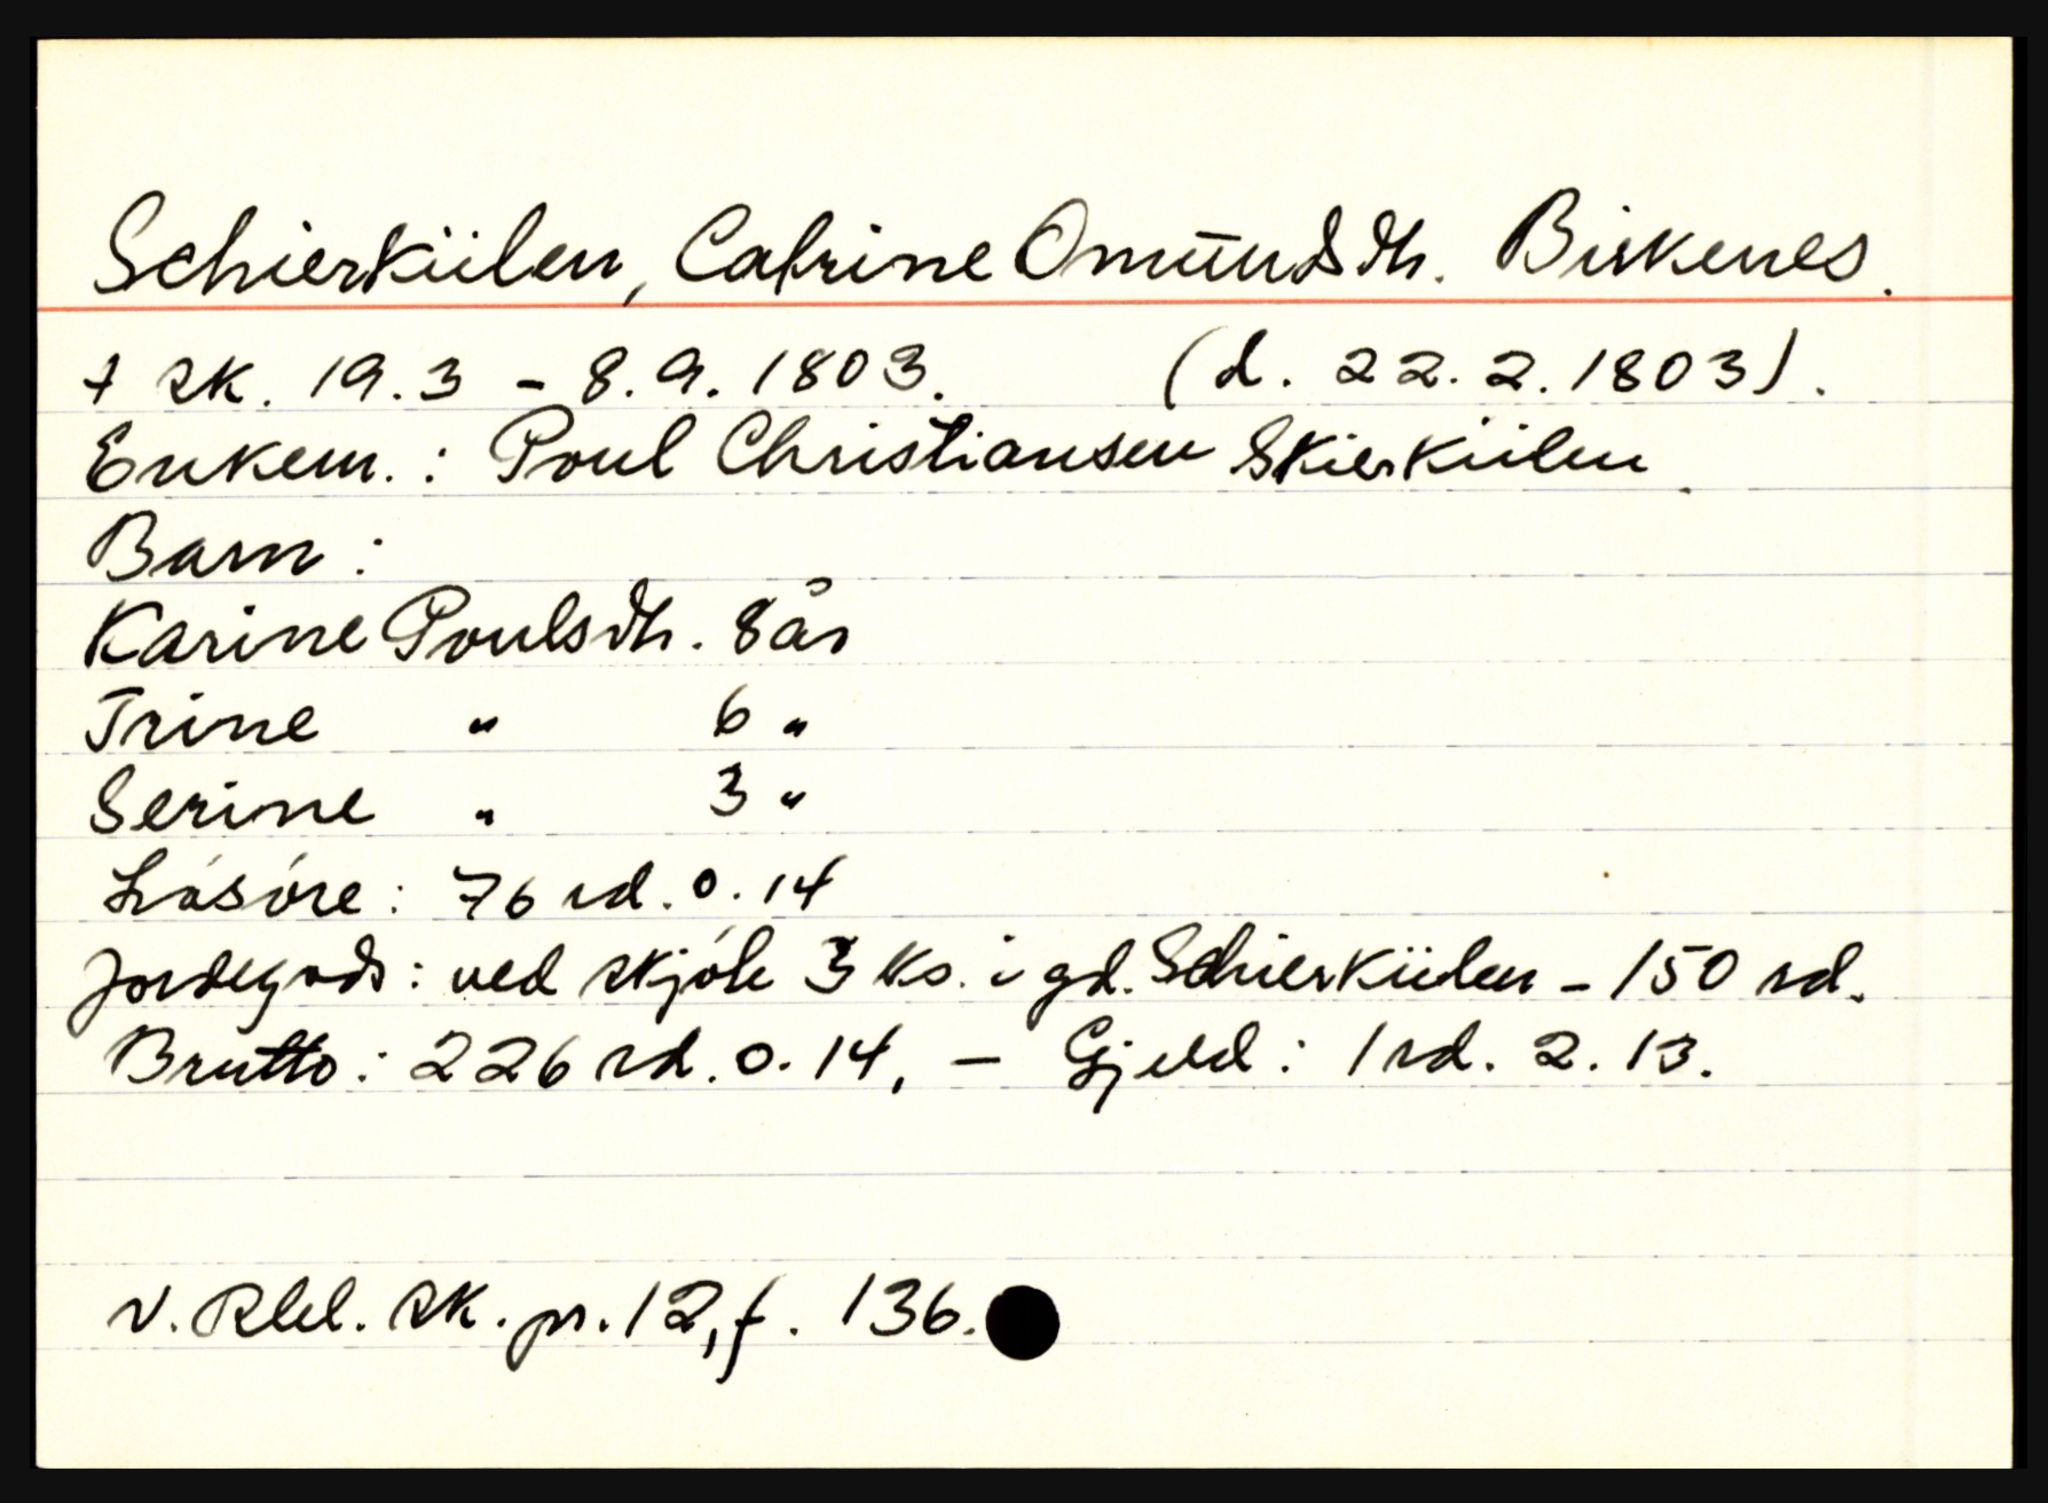 Schierkiilen, Catrine Omunds dtr. Birkenes.
+ sk. 19.3 - 8.9.1803. (d. 22.2.1803).
Enkem.: Poul Christiansen Skierkiilen.
Barn:
Karine Poulsdtr. 8 år
Trine " 6 "
Serine " 3 "
Løsøre: 76 rd. 0. 14
Jordegods: ved skjøte 3 ks. i gd. Schierkiilen - 150 rd.
Brutto: 226 rd. 0. 14. - Gjeld: 1 rd. 2. 13.
N. Rbl. sk. pr. 12, f. 136.